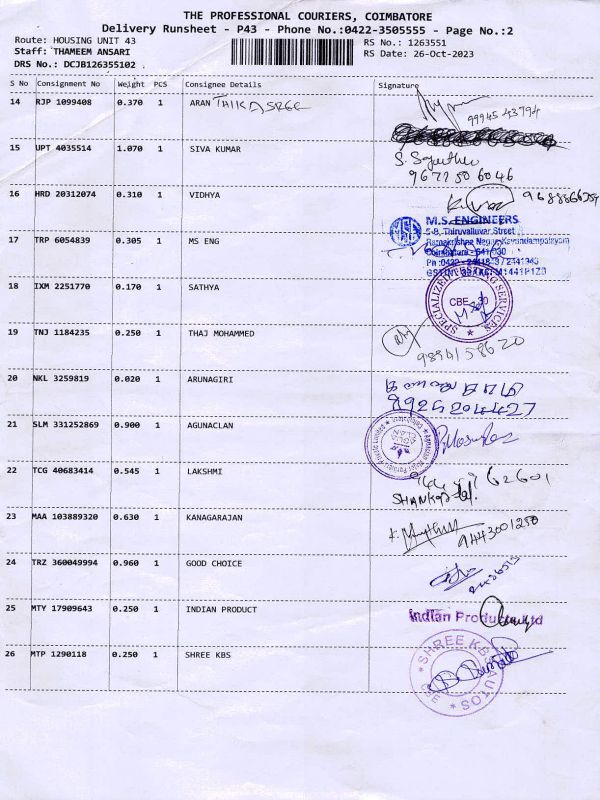 THE PROFESSIONAL COURIERS, COIMBATORE
Delivery Runsheet - P43 - Phone No.:0422-3505555 - Page No.:2
Route: HOUSING UNIT 43
RS No.: 1263551
Staff: THAMEEM ANSARI
RS Date: 26-Oct-2023
DRS No.: DCJB126355102
S No Consignment No Weight PCS Consignee Details Signature
14 RJP 1099408 0.370 1 ARAN
99945 43794
15 UPT 4035514 1.070 1 SIVA KUMAR
16 HRD 20312074 0.310 1 VIDHYA
M.S. ENGINEERS
17 TRP 6054839 0.305 1 MS ENG
18 IXM 2251770 0.170 1 SATHYA
SPECIALIZED SERVICES
CBE - 30
19 TNJ 1184235 0.250 1 THAJ MOHAMMED
20 NKL 3259819 0.020 1 ARUNAGIRI
21 SLM 331252869 0.900 1 AGUNACLAN
22 TCG 40683414 0.545 1 LAKSHMI
23 MAA 103889320 0.630 1 KANAGARAJAN
9443001250
24 TRZ 360049994 0.960 1 GOOD CHOICE
25 MTY 17909643 0.250 1 INDIAN PRODUCT
Indian Products Ltd
26 MTP 1290118 0.250 1 SHREE KBS
SHREE KBS AUTOS
CBE